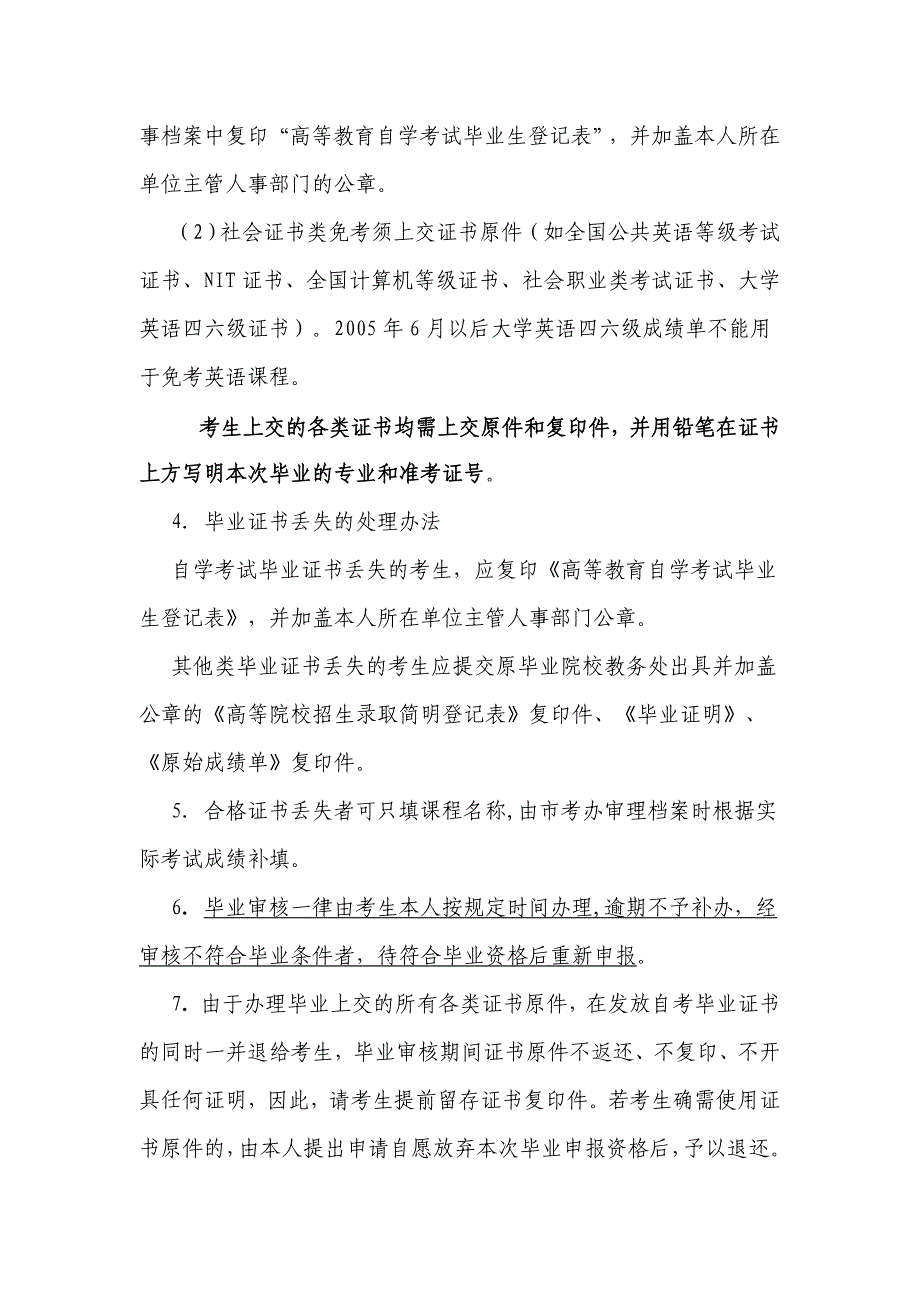 事档案中复印“高等教育自学考试毕业生登记表”，并加盖本人所在
单位主管人事部门的公章。
（2）社会证书类免考须上交证书原件（如全国公共英语等级考试
证书、NIT 证书、全国计算机等级证书、社会职业类考试证书、大学
英语四六级证书）。2005 年 6 月以后大学英语四六级成绩单不能用
于免考英语课程。
考生上交的各类证书均需上交原件和复印件，并用铅笔在证书
上方写明本次毕业的专业和准考证号。
4. 毕业证书丢失的处理办法
自学考试毕业证书丢失的考生，应复印《高等教育自学考试毕业
生登记表》，并加盖本人所在单位主管人事部门公章。
其他类毕业证书丢失的考生应提交原毕业院校教务处出具并加盖
公章的《高等院校招生录取简明登记表》复印件、《毕业证明》、
《原始成绩单》复印件。
5. 合格证书丢失者可只填课程名称,由市考办审理档案时根据实
际考试成绩补填。
6. 毕业审核一律由考生本人按规定时间办理,逾期不予补办，经
审核不符合毕业条件者，待符合毕业资格后重新申报。
7. 由于办理毕业上交的所有各类证书原件，在发放自考毕业证书
的同时一并退给考生，毕业审核期间证书原件不返还、不复印、不开
具任何证明，因此，请考生提前留存证书复印件。若考生确需使用证
书原件的,由本人提出申请自愿放弃本次毕业申报资格后,予以退还。